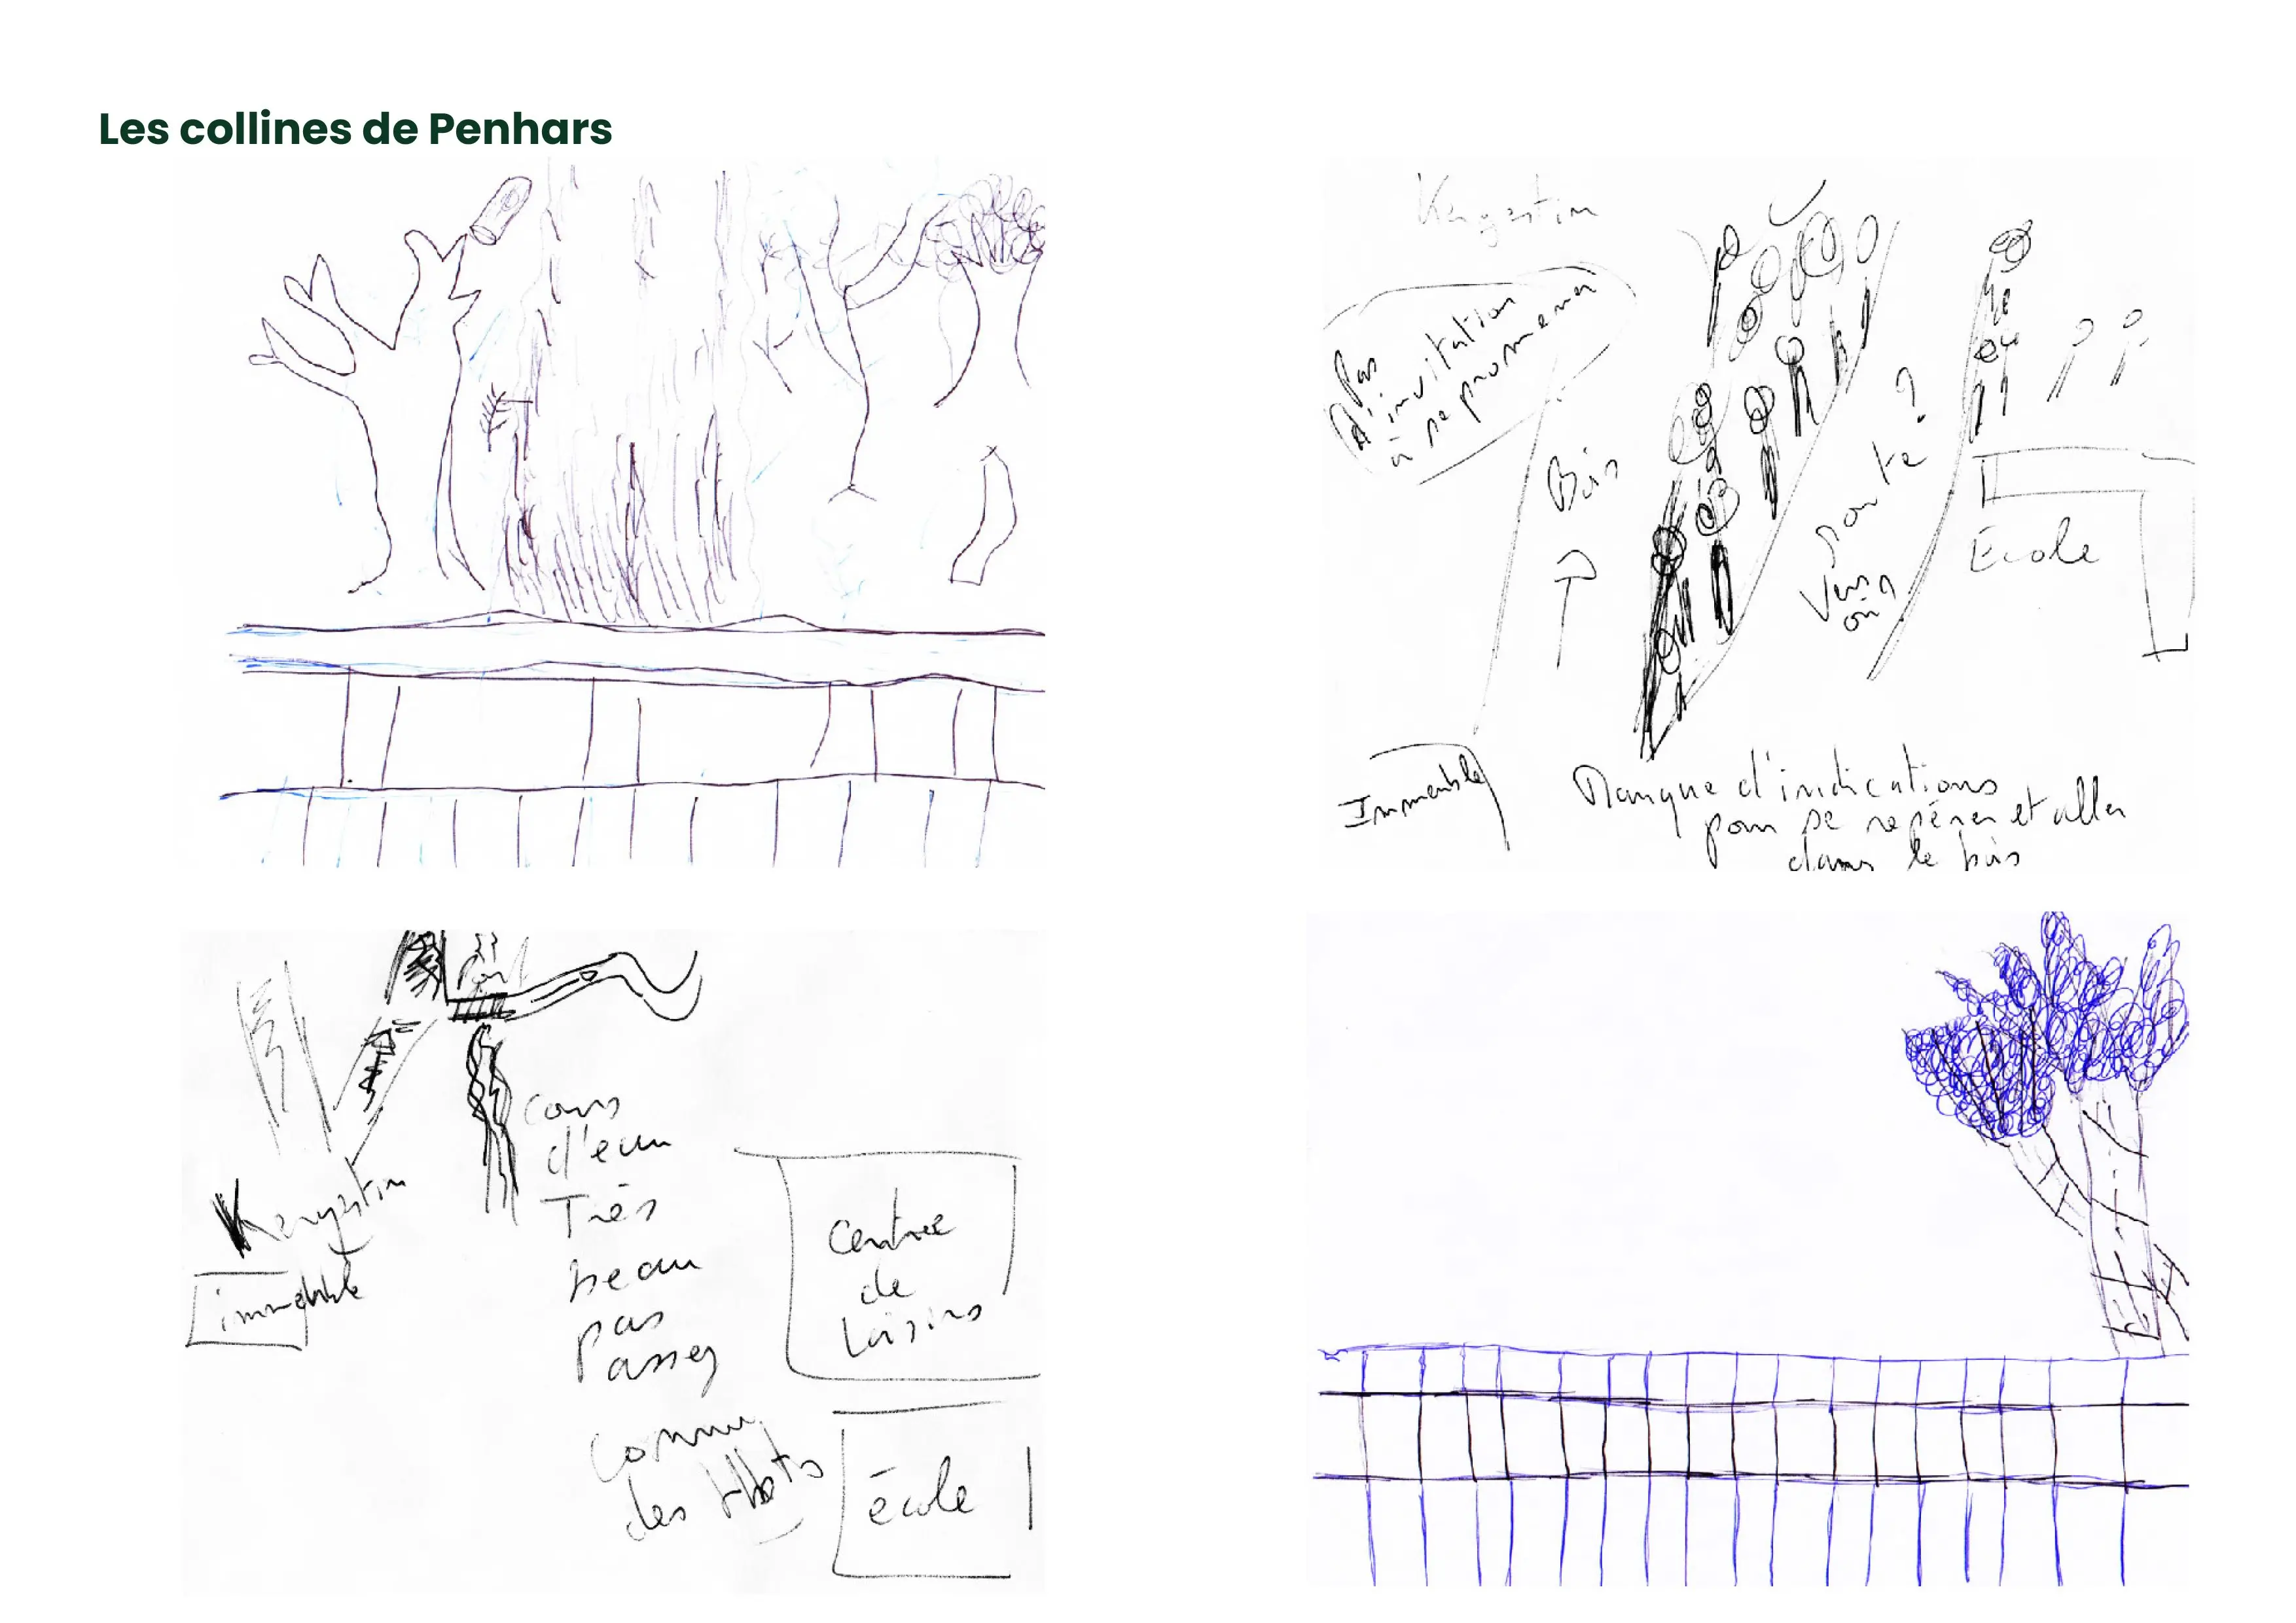 Les collines de Penhars
Kergestin
Pas
d'invitation
à se promener
Bois
porte ?
Vers
où
Ecole
Immeuble
Manque d'indications
pour se repérer et aller
dans le bois
Pont
Kergestin
immeuble
cours
d'eau
Très
beau
pas
assez
connu
des Hbts
Centre
de
Loisirs
école